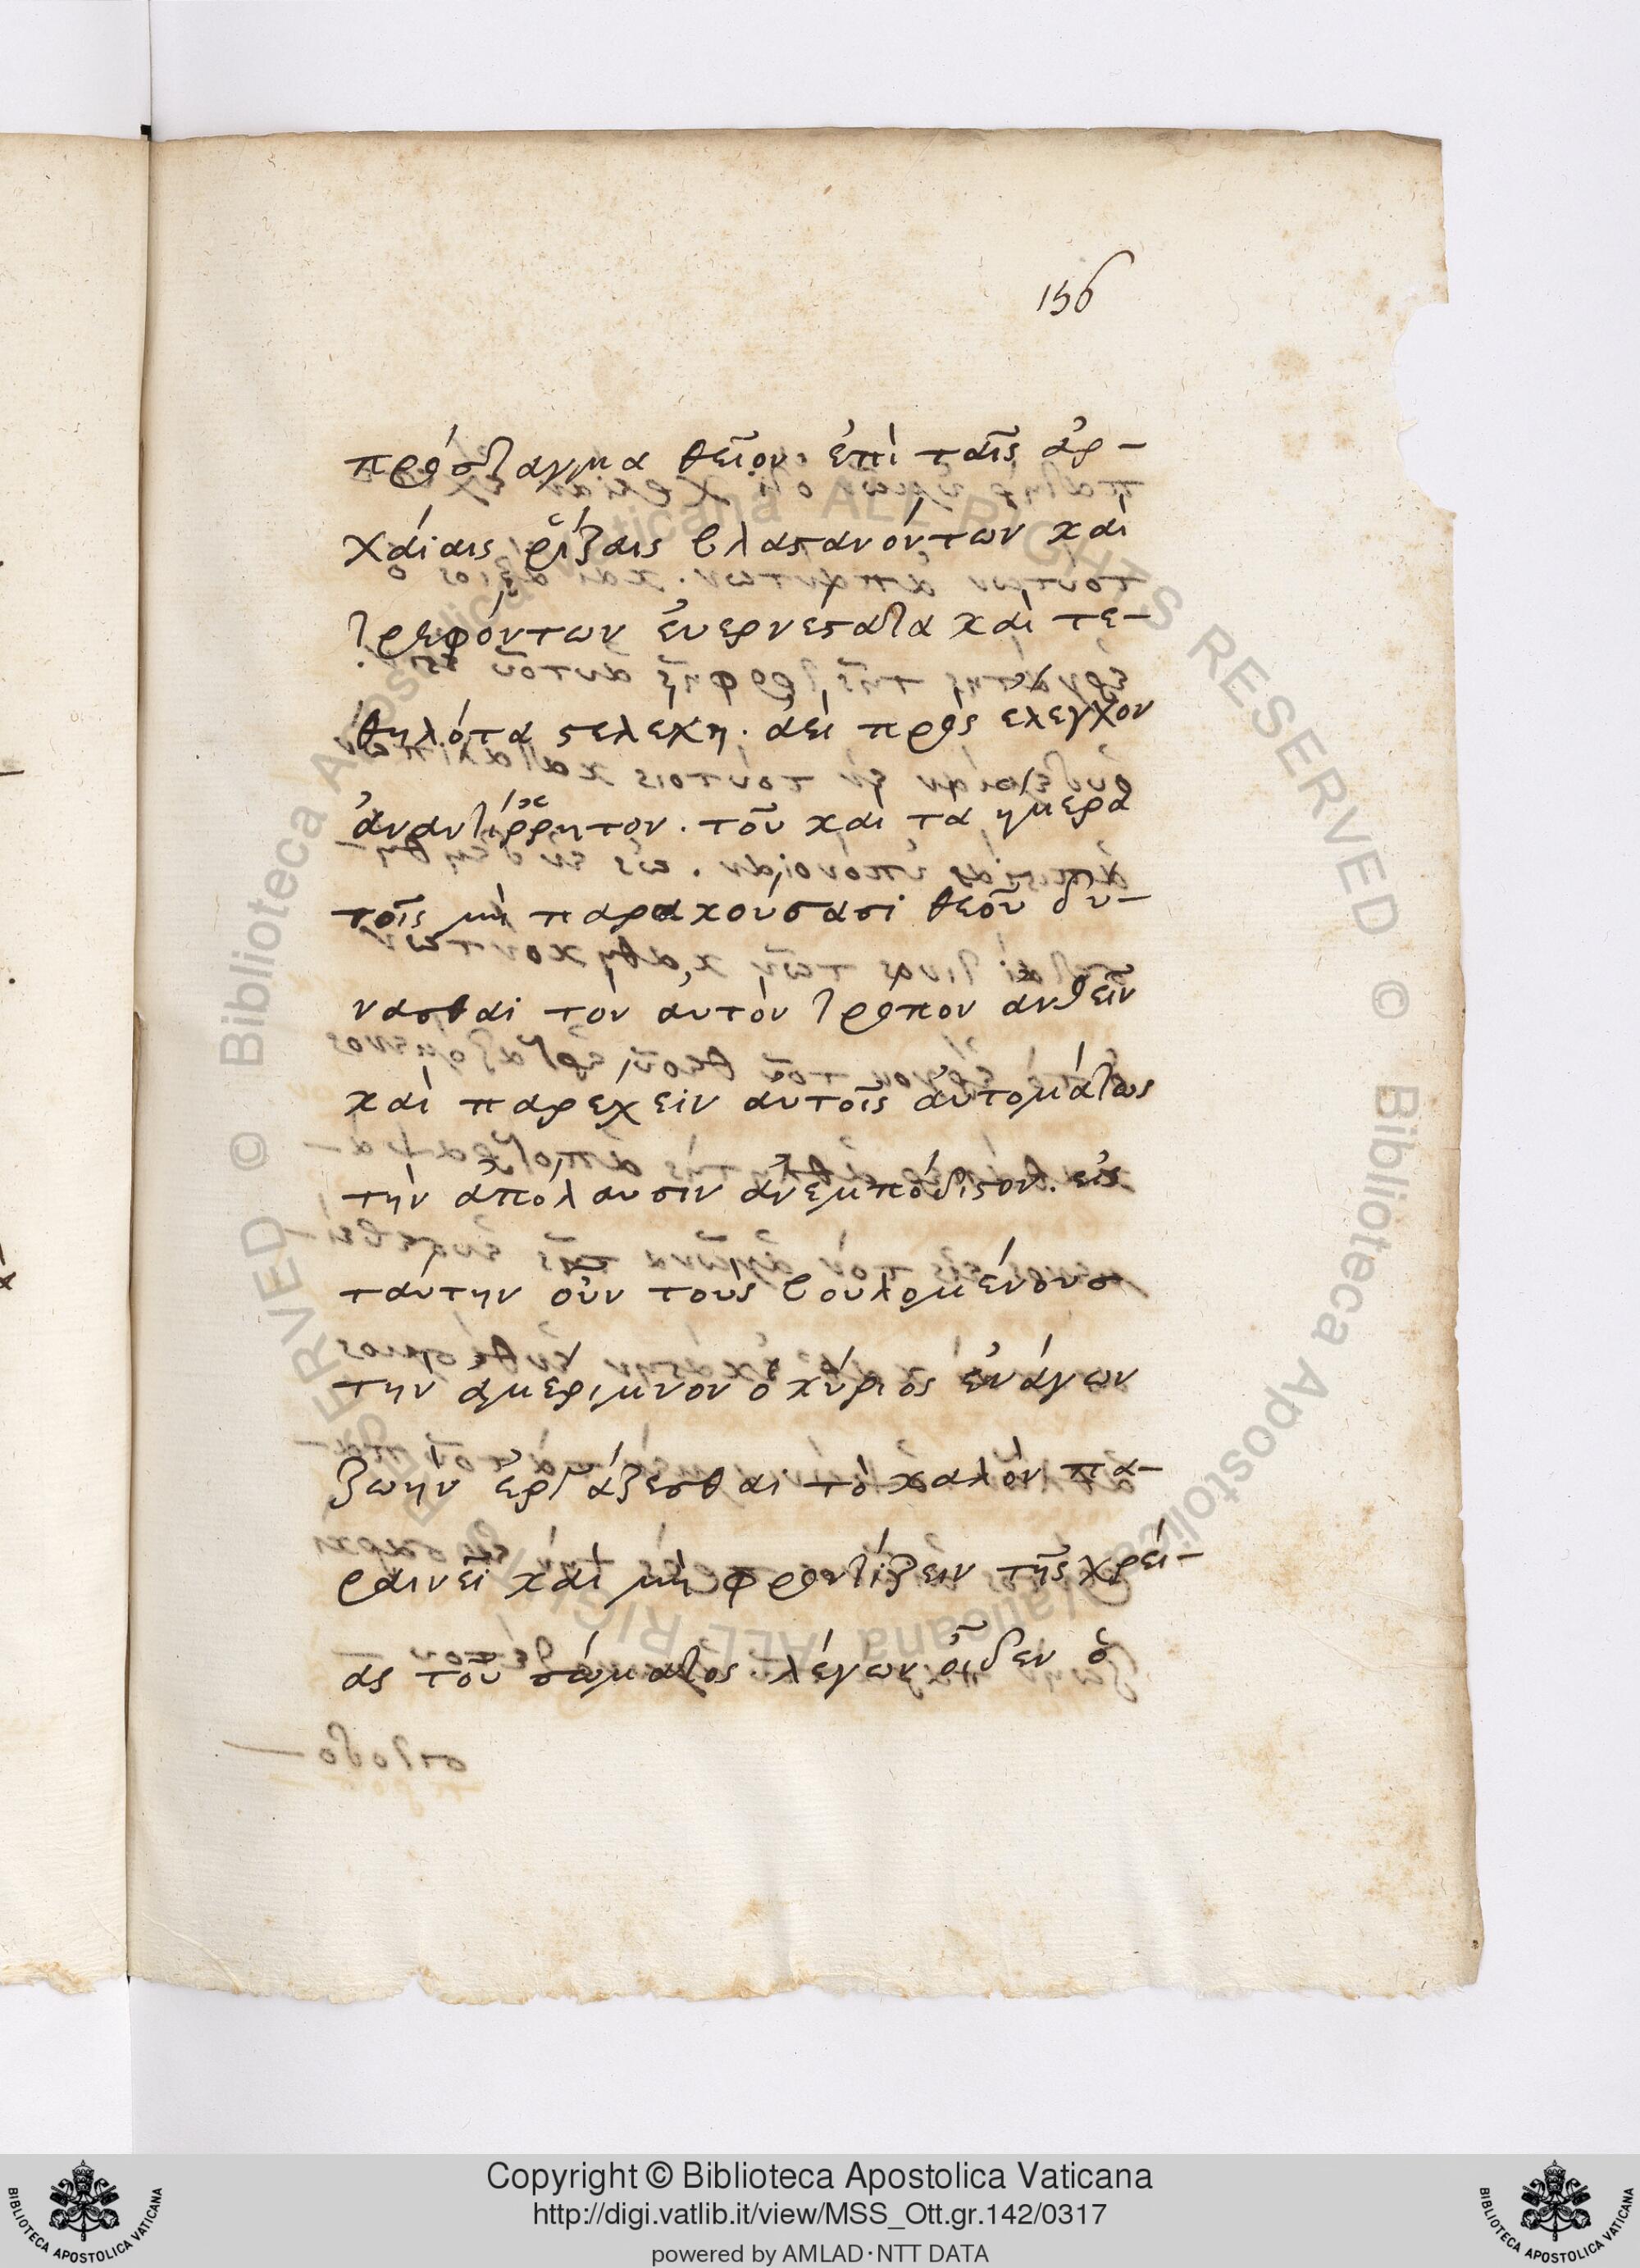 156
πρόσταγμα θεῖον. ἐπὶ ταῖς ἀρ-
χάιαις ῥίζαις βλαςανόντων καὶ
τρεφόντων ἐυερνέςατα καὶ τε-
θηλότα ςελεχη. ἀεὶ πρὸς ελεγχον
ἀναντίῤῥητον. τοῦ καὶ τὰ ἡμερα
τοῖς μὴ παρακούσασι θεοῦ δύ-
νασθαι τὸν αὐτὸν τρόπον ἀνθεῖν
καὶ παρέχειν αὐτοῖς αὐτομάτως
τὴν ἀπόλαυσιν ἀνεμπόδιςον. εἰς
ταύτην οὖν τοὺς βουλομένους
τὴν ἀμεριμνον ὁ κύριος ἐνάγων
ζωὴν ἐργάζεσθαι τὸ καλὸν πα-
ραινεῖ καὶ μὴ φροντίζειν τῆς χρεί-
ας τοῦ σώματος. λέγων οἶδεν ὁ
Copyright © Biblioteca Apostolica Vaticana
http://digi.vatlib.it/view/MSS_Ott.gr.142/0317
powered by AMLAD·NTT DATA
BIBLIOTECA APOSTOLICA VATICANA
BIBLIOTECA APOSTOLICA VATICANA